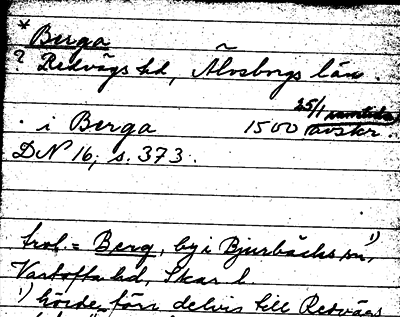 * Berga
? Redvägs hd, Älvsborgs län.
25/1 samtida
. i Berga 1500 avskr.
DN 16, s. 373.
trol = Berg, by i Bjurbäcks sn, 1)
Vartofta hd, Skar. l.
1) hörde förr delvis till Redvägs